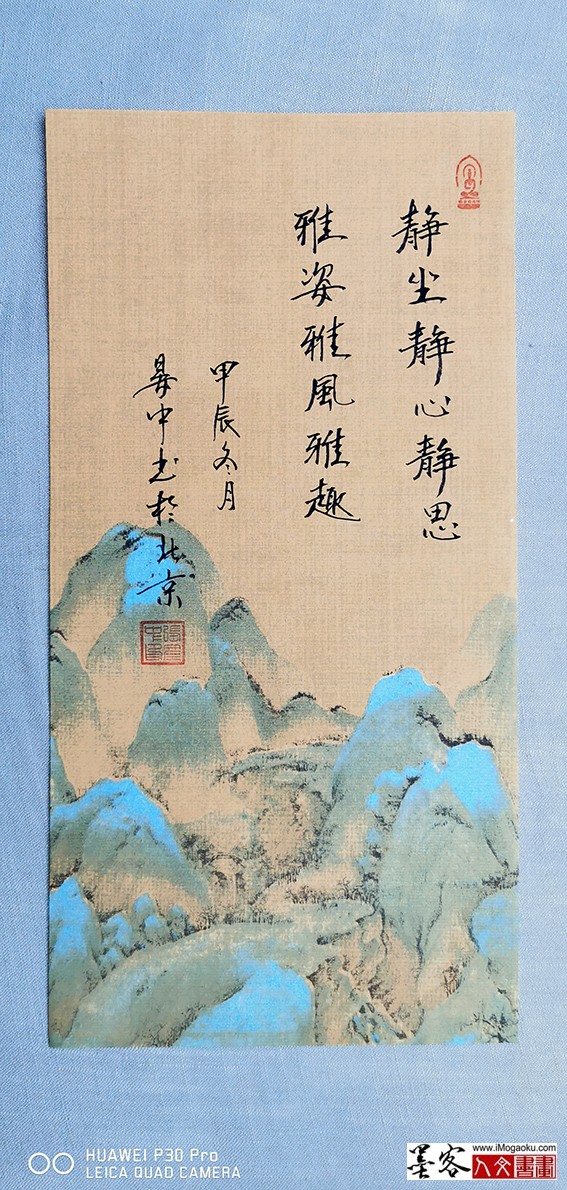 静坐静心静思
雅姿雅风雅趣
甲辰冬月
中书於北京
HUAWEI P30 Pro
LEICA QUAD CAMERA
www.iMogaoku.com
墨客
人文書畫